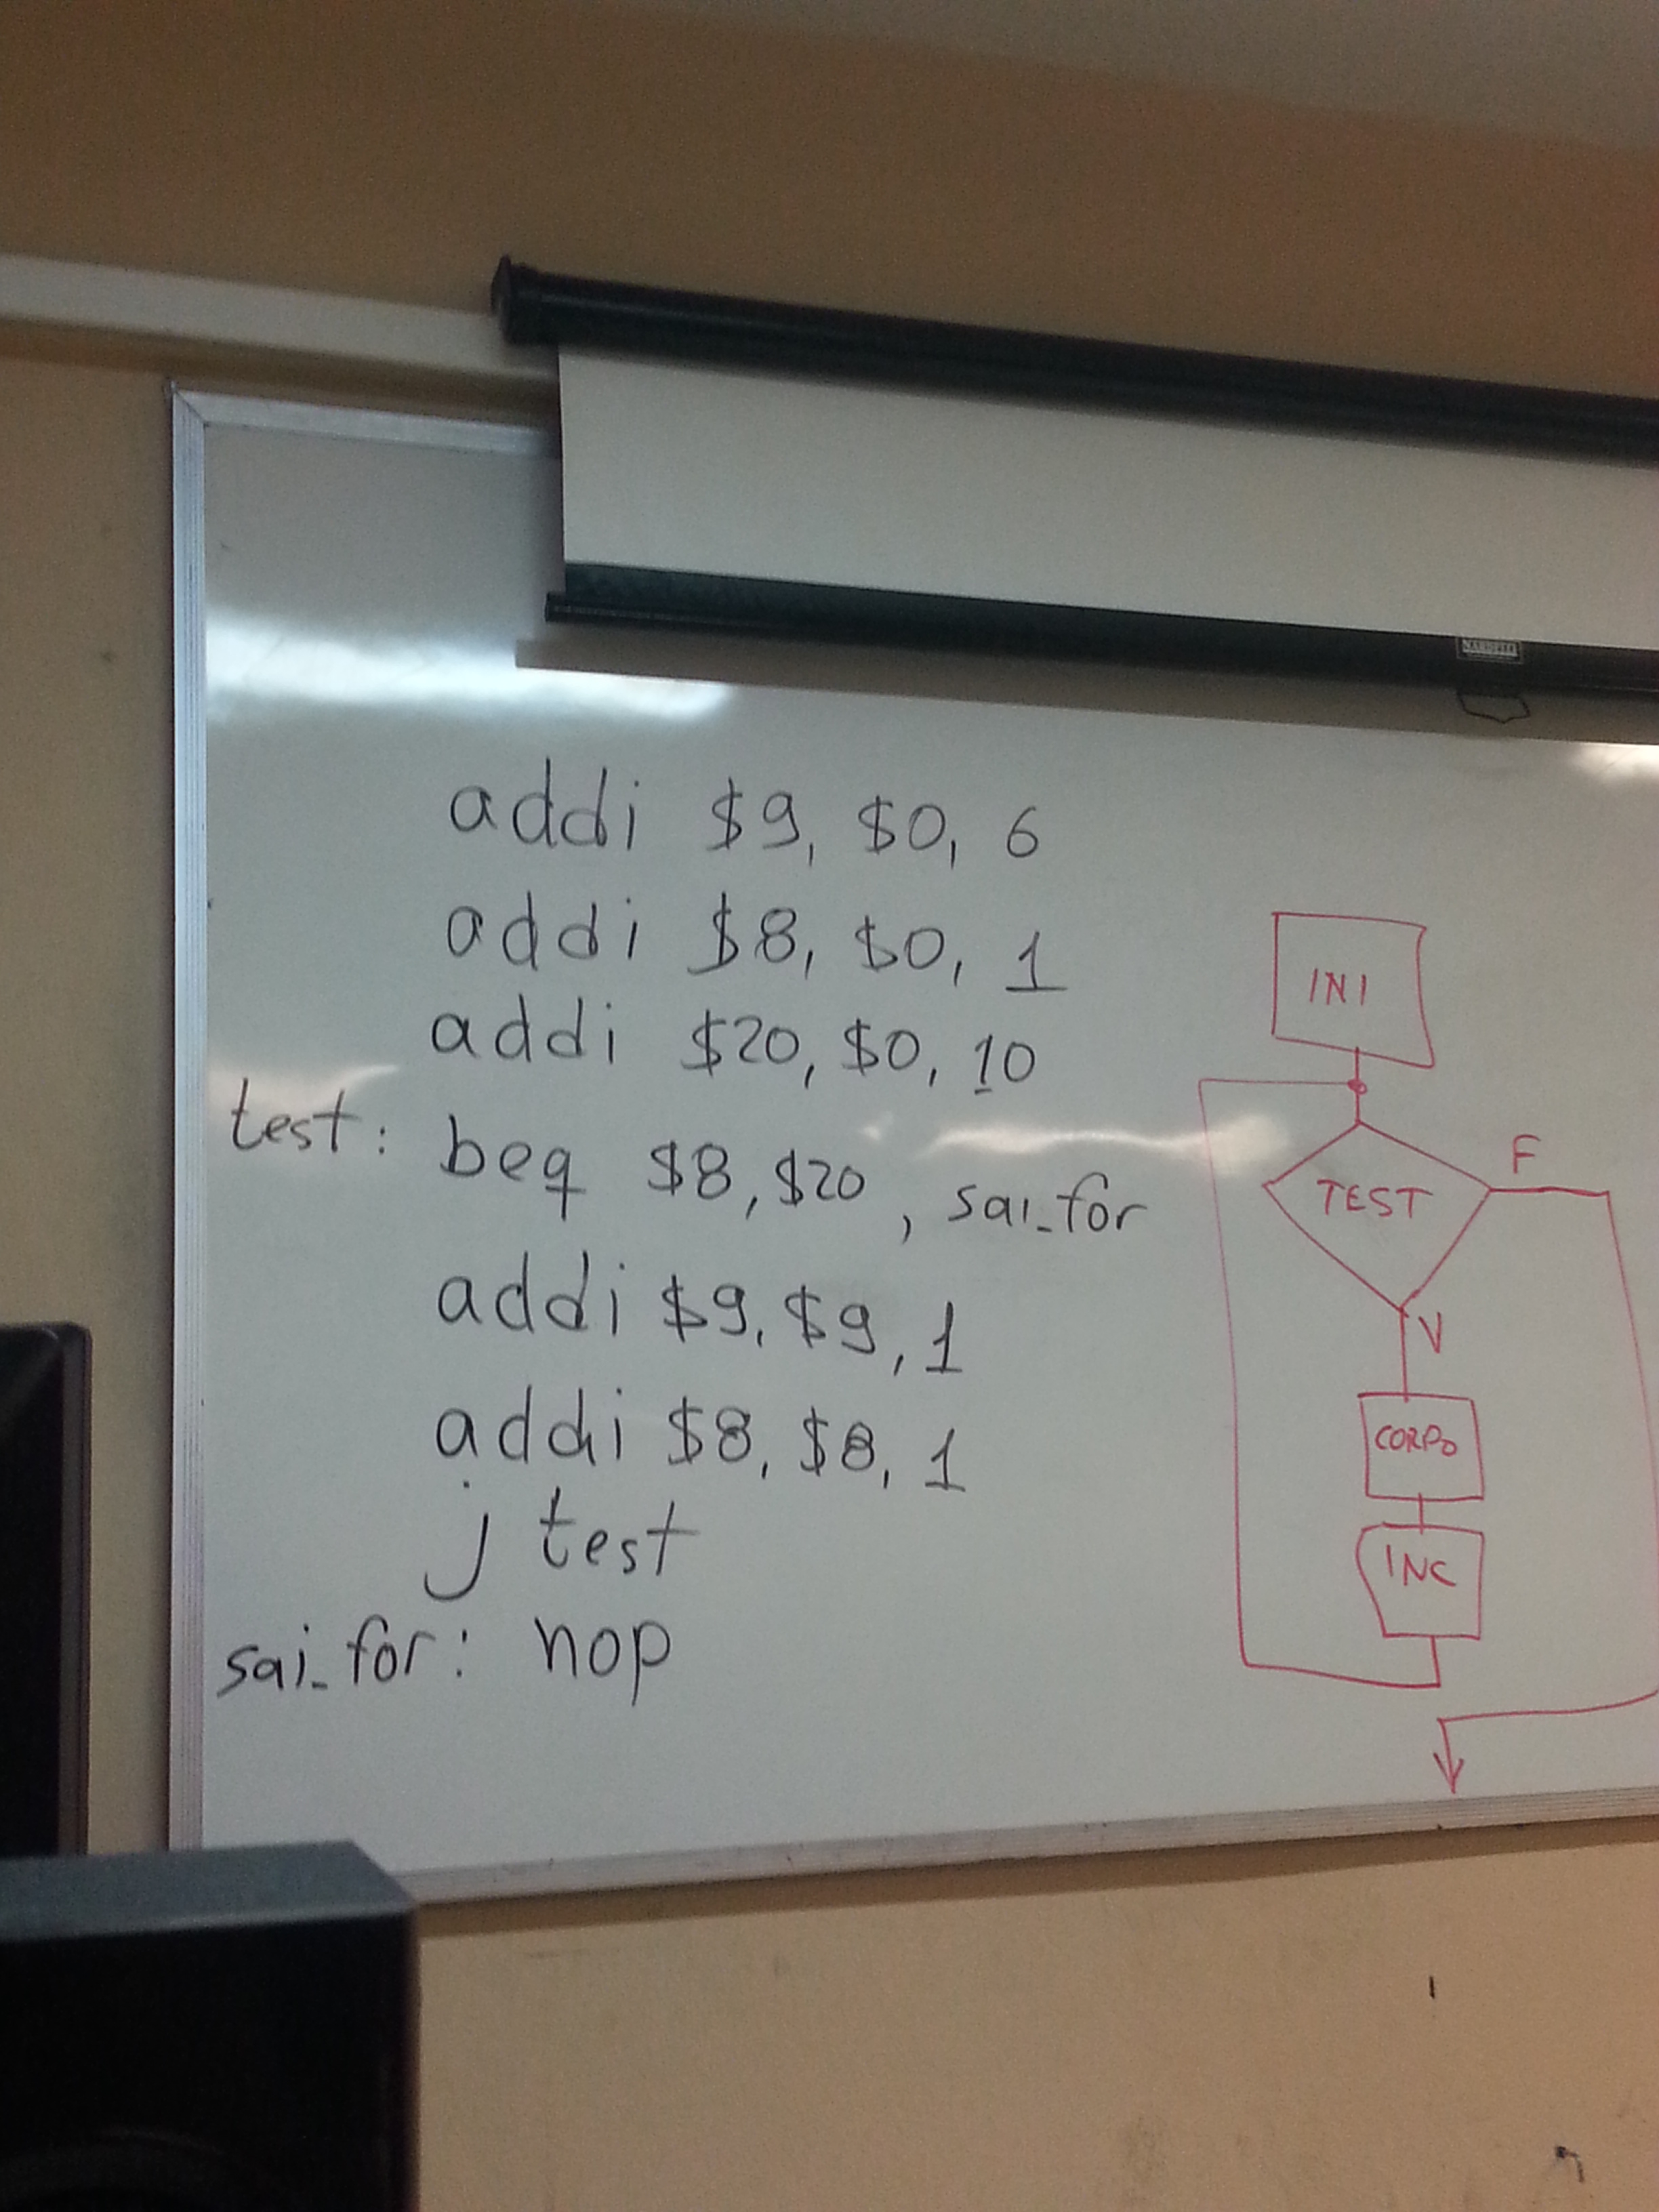 addi $9, $0, 6
addi $8, $0, 1
addi $20, $0, 10
test: beq $8, $20, sai_for
addi $9, $9, 1
addi $8, $8, 1
j test
sai_for: nop
INI
TEST
F
V
CORPO
INC